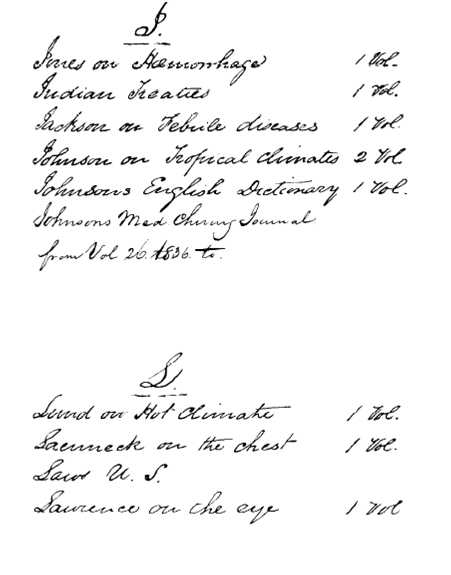 J.
Jones on Hæmorrhage 1 Vol.
Indian Treaties 1 Vol.
Jackson on Febrile diseases 1 Vol.
Johnson on Tropical climates 2 Vol
Johnsons English Dictionary 1 Vol.
Johnsons Med Chirurg Journal
from Vol 26. 1836. to.
L.
Lind on Hot Climate 1 Vol.
Laenneck on the chest 1 Vol.
Laws U. S.
Lawrence on the eye 1 Vol